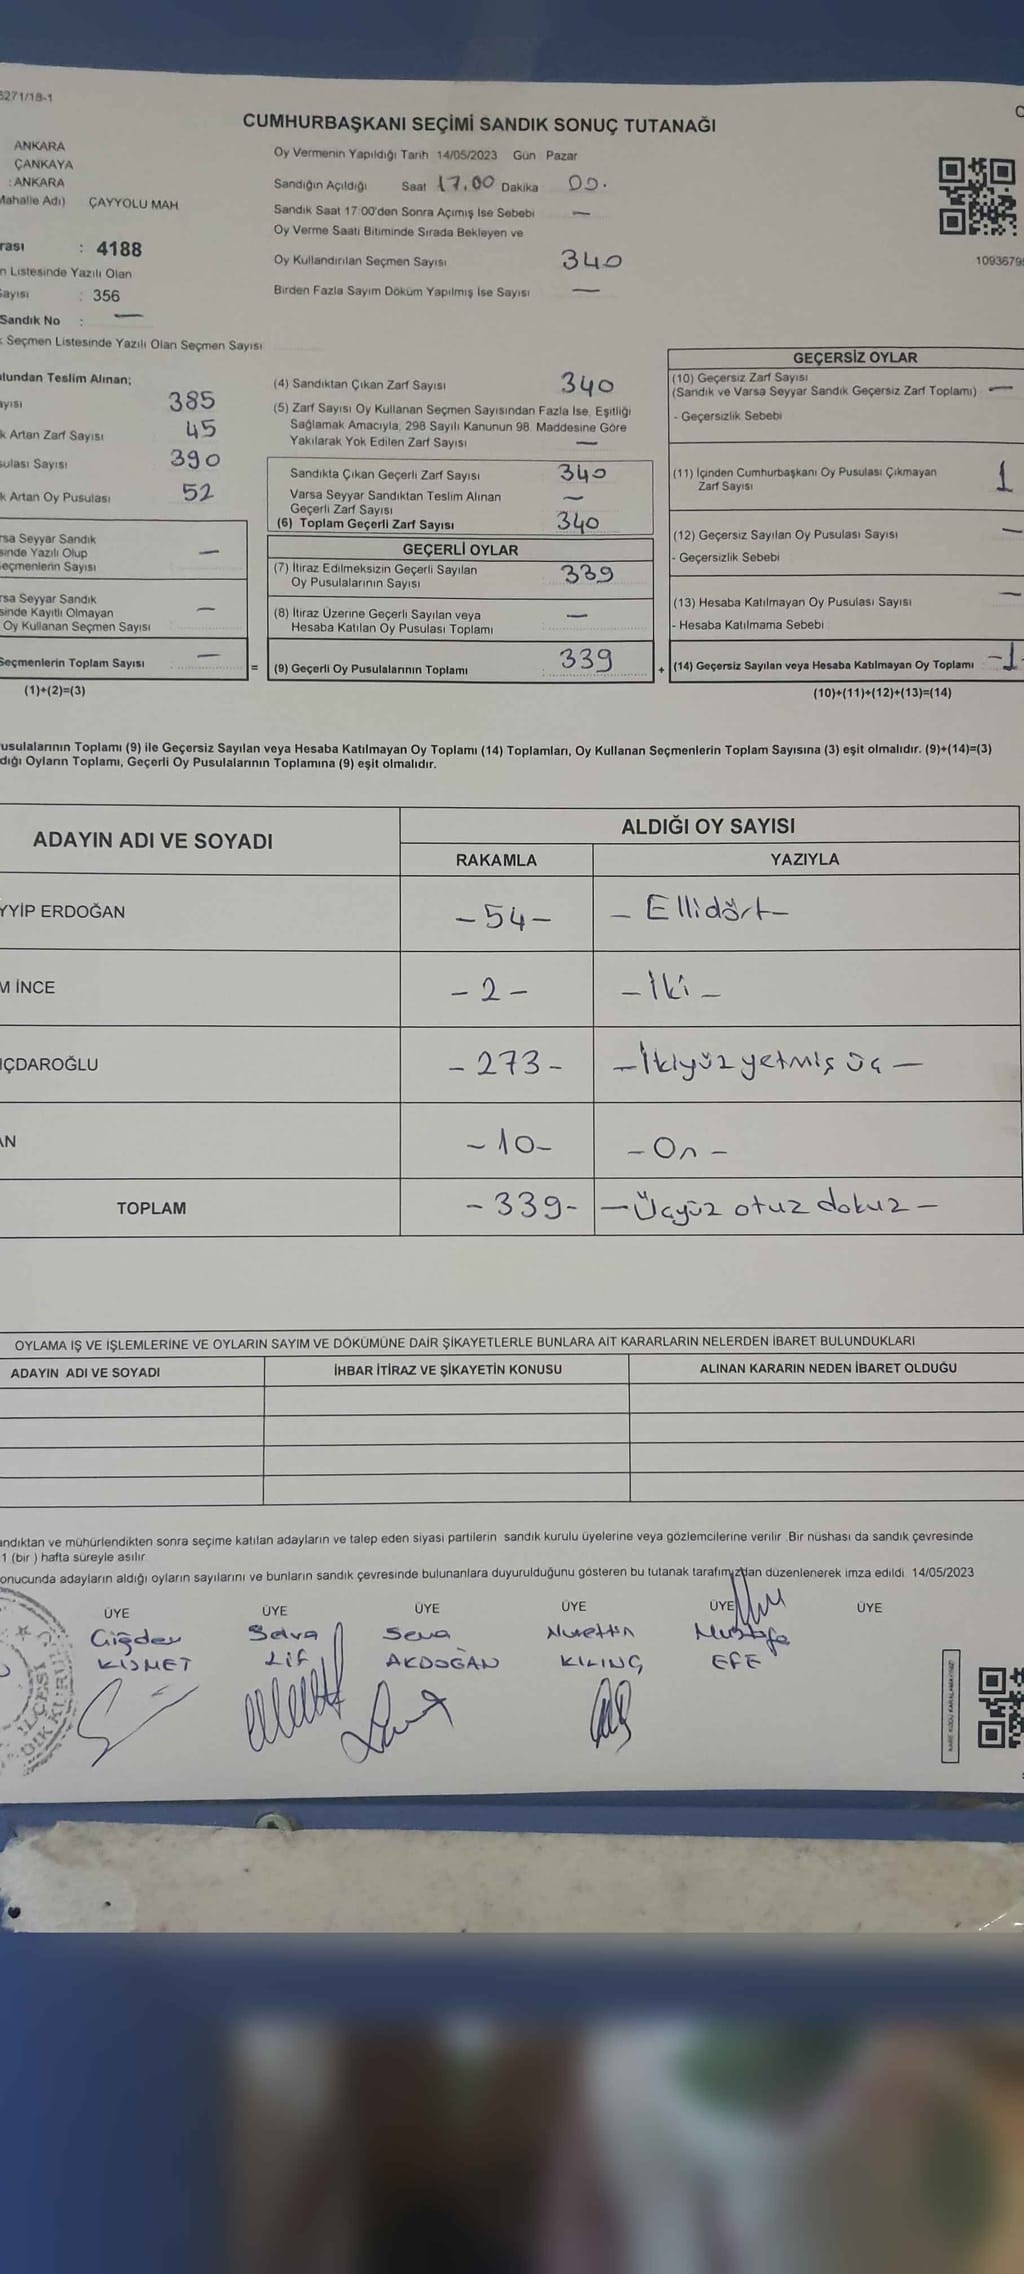 6271/18-1
CUMHURBAŞKANI SEÇİMİ SANDIK SONUÇ TUTANAĞI
ANKARA
ÇANKAYA
: ANKARA
Mahalle Adı) ÇAYYOLU MAH.
rası : 4188
n Listesinde Yazılı Olan
Sayısı : 356
Sandık No : —
k Seçmen Listesinde Yazılı Olan Seçmen Sayısı
Oy Vermenin Yapıldığı Tarih 14/05/2023 Gün Pazar
Sandığın Açıldığı Saat 17.00 Dakika 00.
Sandık Saat 17:00'den Sonra Açımış İse Sebebi —
Oy Verme Saati Bitiminde Sırada Bekleyen ve
Oy Kullandırılan Seçmen Sayısı 340
Birden Fazla Sayım Döküm Yapılmış İse Sayısı —
1093679
ulundan Teslim Alınan;
ayısı 385
k Artan Zarf Sayısı 45
sulası Sayısı 390
k Artan Oy Pusulası 52
rsa Seyyar Sandık
sinde Yazılı Olup
eçmenlerin Sayısı —
rsa Seyyar Sandık
sinde Kayıtlı Olmayan
Oy Kullanan Seçmen Sayısı —
Seçmenlerin Toplam Sayısı —
(1)+(2)=(3)
=
(4) Sandıktan Çıkan Zarf Sayısı 340
(5) Zarf Sayısı Oy Kullanan Seçmen Sayısından Fazla İse, Eşitliği
Sağlamak Amacıyla, 298 Sayılı Kanunun 98. Maddesine Göre
Yakılarak Yok Edilen Zarf Sayısı —
Sandıkta Çıkan Geçerli Zarf Sayısı 340
Varsa Seyyar Sandıktan Teslim Alınan
Geçerli Zarf Sayısı —
(6) Toplam Geçerli Zarf Sayısı 340
GEÇERLİ OYLAR
(7) İtiraz Edilmeksizin Geçerli Sayılan
Oy Pusulalarının Sayısı 339
(8) İtiraz Üzerine Geçerli Sayılan veya
Hesaba Katılan Oy Pusulası Toplamı —
(9) Geçerli Oy Pusulalarının Toplamı : 339
+
GEÇERSİZ OYLAR
(10) Geçersiz Zarf Sayısı
(Sandık ve Varsa Seyyar Sandık Geçersiz Zarf Toplamı) —
- Geçersizlik Sebebi
(11) İçinden Cumhurbaşkanı Oy Pusulası Çıkmayan
Zarf Sayısı 1
(12) Geçersiz Sayılan Oy Pusulası Sayısı —
- Geçersizlik Sebebi
(13) Hesaba Katılmayan Oy Pusulası Sayısı —
- Hesaba Katılmama Sebebi
(14) Geçersiz Sayılan veya Hesaba Katılmayan Oy Toplamı -1-
(10)+(11)+(12)+(13)=(14)
usulalarının Toplamı (9) ile Geçersiz Sayılan veya Hesaba Katılmayan Oy Toplamı (14) Toplamları, Oy Kullanan Seçmenlerin Toplam Sayısına (3) eşit olmalıdır. (9)+(14)=(3)
dığı Oyların Toplamı, Geçerli Oy Pusulalarının Toplamına (9) eşit olmalıdır.
ADAYIN ADI VE SOYADI
ALDIĞI OY SAYISI
RAKAMLA YAZIYLA
YYİP ERDOĞAN -54- - Ellidört-
M İNCE - 2 - - İki -
IÇDAROĞLU - 273- -İkiyüz yetmiş üç -
AN -10- - On -
TOPLAM - 339- -Üçyüz otuz dokuz -
OYLAMA İŞ VE İŞLEMLERİNE VE OYLARIN SAYIM VE DÖKÜMÜNE DAİR ŞİKAYETLERLE BUNLARA AİT KARARLARIN NELERDEN İBARET BULUNDUKLARI
ADAYIN ADI VE SOYADI İHBAR İTİRAZ VE ŞİKAYETİN KONUSU ALINAN KARARIN NEDEN İBARET OLDUĞU
andıktan ve mühürlendikten sonra seçime katılan adayların ve talep eden siyasi partilerin sandık kurulu üyelerine veya gözlemcilerine verilir .Bir nüshası da sandık çevresinde
1 (bir ) hafta süreyle asılır
onucunda adayların aldığı oyların sayılarını ve bunların sandık çevresinde bulunanlara duyurulduğunu gösteren bu tutanak tarafımızdan düzenlenerek imza edildi. 14/05/2023
ÜYE ÜYE ÜYE ÜYE ÜYE ÜYE
Çiğdem Selva Sena Nurettin Mustafa
KISMET Elif AKDOĞAN KILINÇ EFE
İLÇESİ